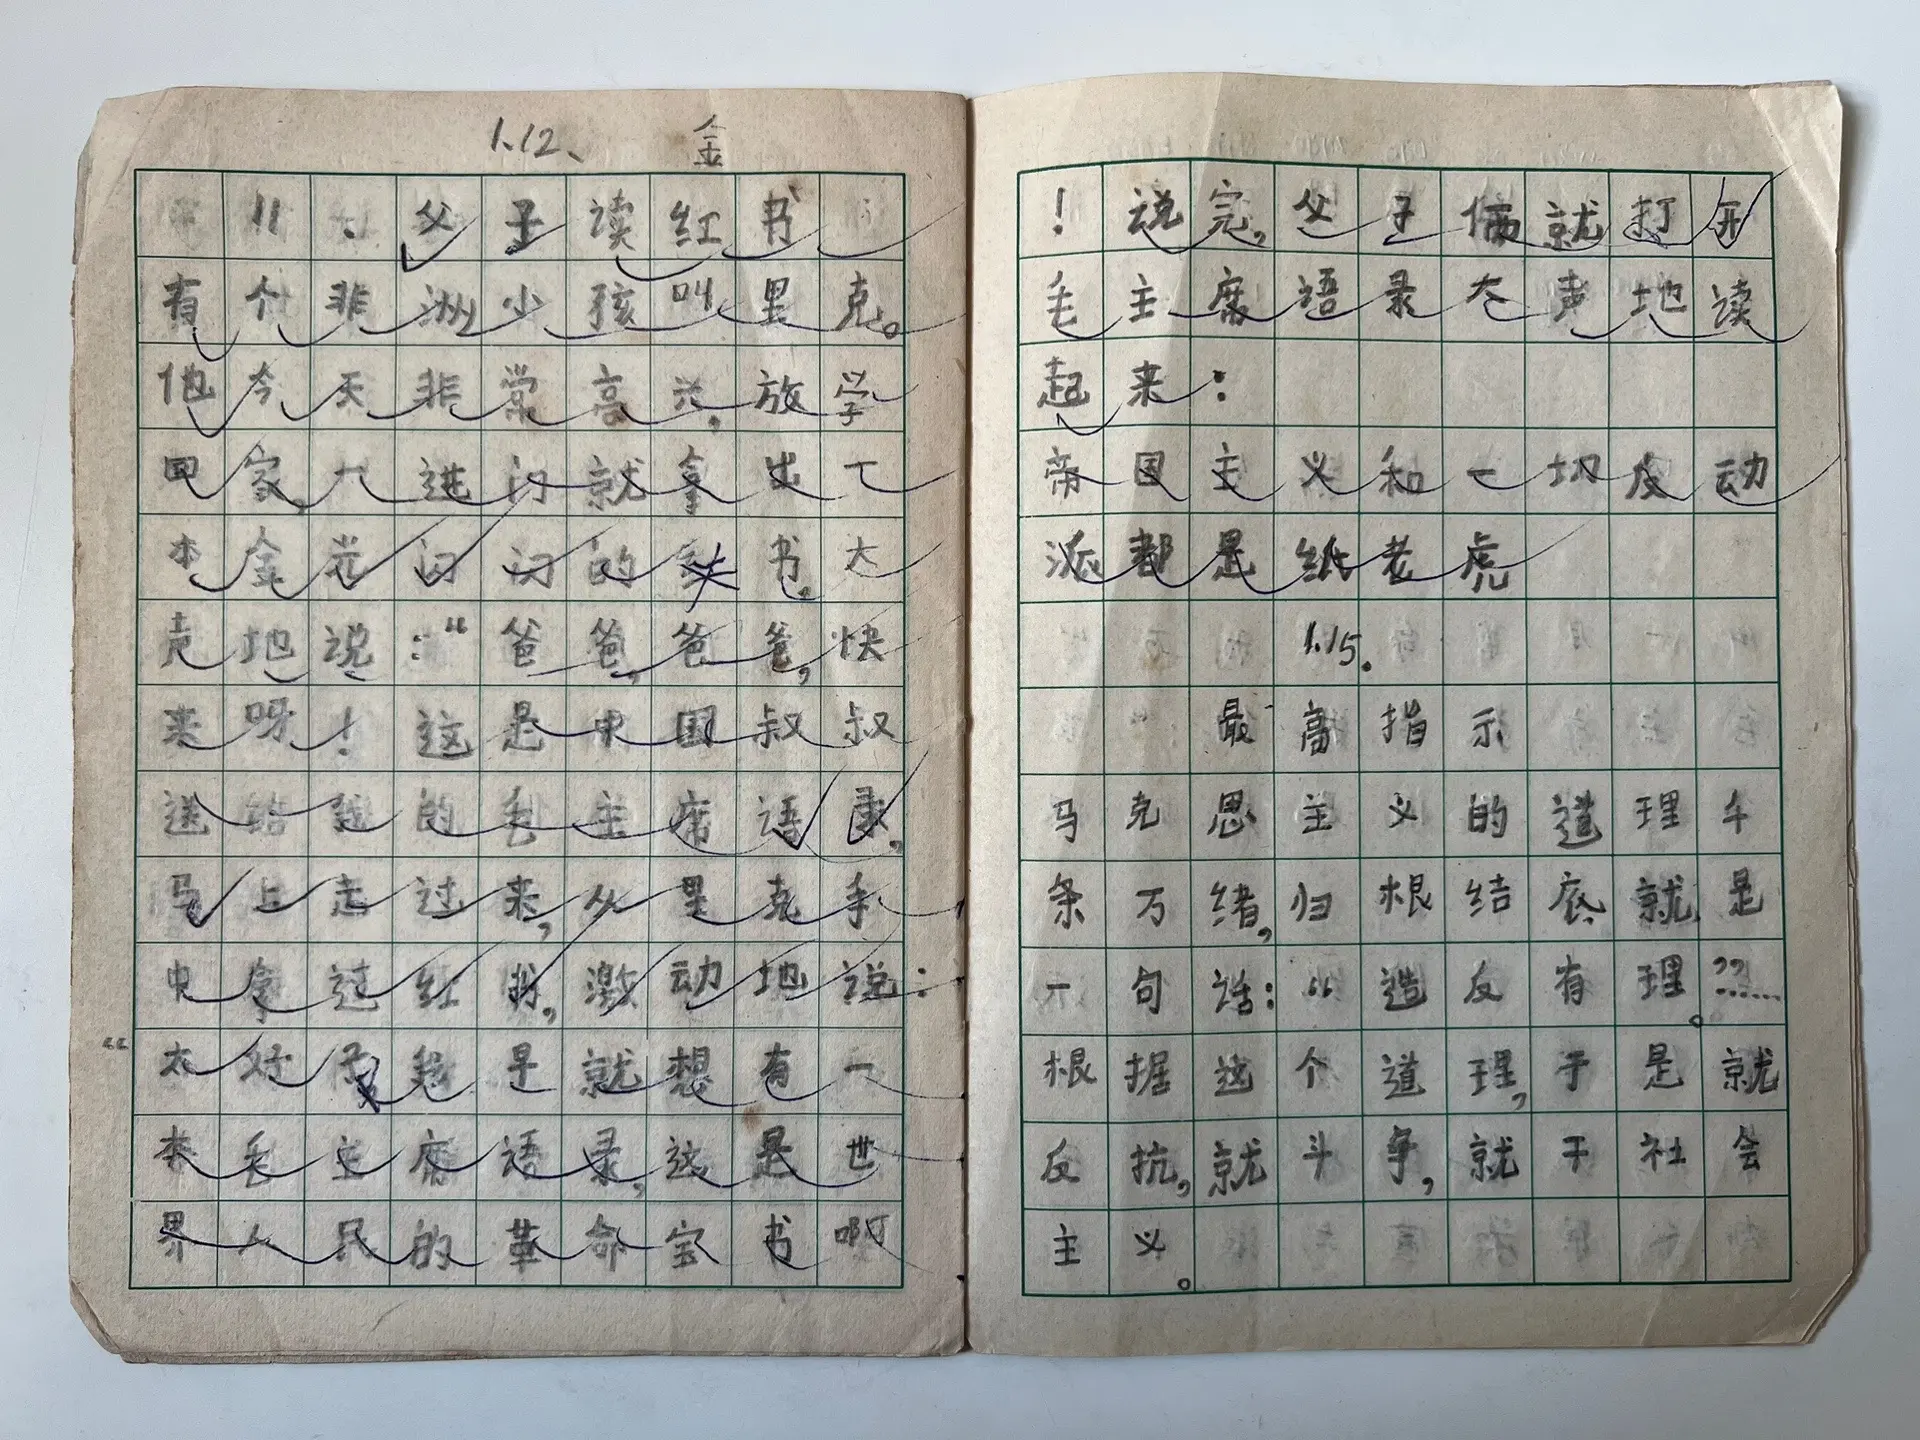 1.12、 金
11、父子读红书
有个非洲小孩叫里克。
他今天非常高兴,放学
回家,一进门就拿出一
本金光闪闪的红书,大
声地说:“爸爸,爸爸,快
来呀!这是中国叔叔
送给我的毛主席语录,
马上走过来,从里克手
中拿过红书,激动地说:
“太好了我早就想有一
本毛主席语录,这是世
界人民的革命宝书啊
!说完,父子俩就打开
毛主席语录大声地读
起来:
帝国主义和一切反动
派都是纸老虎
1.15.
最高指示
马克思主义的道理千
条万绪,归根结底就是
一句话:“造反有理。”……
根据这个道理,于是就
反抗,就斗争,就干社会
主义。